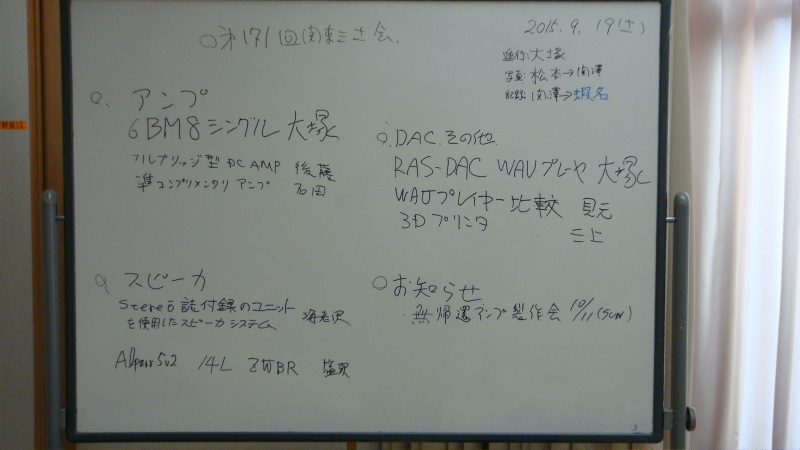 ○第171回関東三土会.
2015.9.19(土)
進行:大塚
写真:松本→関澤
記録:関澤→蝦名
○.アンプ
6BM8シングル 大塚
フルブリッジ型DC AMP 後藤
準コンプリメンタリ アンプ 石田
○.DAC.その他.
RAS-DAC WAVプレーヤ 大塚
WAVプレイヤー比較 貝元
3Dプリンタ 三上
○スピーカ
Stereo誌付録のユニット
を使用したスピーカシステム 海老沢
Alpair5v2 14L ZWBR 塩沢
○お知らせ
・無帰還アンプ製作会 10/11(SUN)